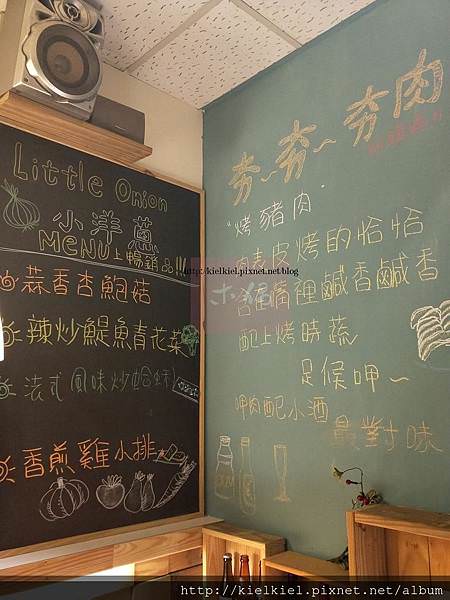 Little Onion
小洋蔥
MENU上暢銷品!!!
蒜香杏鮑菇
辣炒鯷魚青花菜
法式風味炒蛤蜊
香煎雞小排
夯~夯~夯肉
"烤豬肉"
肉表皮烤的恰恰
裡鹹香鹹香
配上烤時蔬
是候呷~
呷肉配小酒
最對味
http://kielkiel.pixnet.net/blog
http://kielkiel.pixnet.net/album